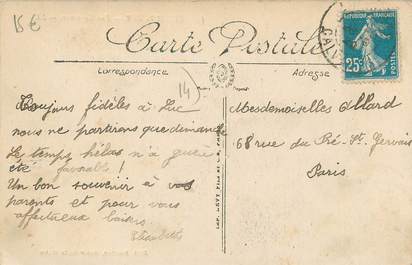 15 €
Carte Postale
Correspondance
Adresse
RÉPUBLIQUE FRANÇAISE
25c
POSTES
14
Toujours fidèles à Luc
nous ne partirons que dimanche
Le temps hélas n'a guère
été favorable !
Un bon souvenir à vos
parents et pour vous
affectueux baisers.
Elisabeth
Mesdemoiselles Allard
68 rue du Pré-St-Gervais
Paris